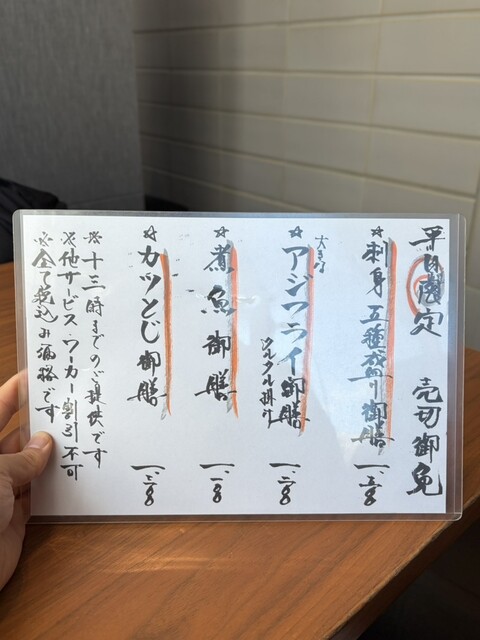 平日限定 売切御免
☆刺身五種盛り御膳 一、三〇〇
☆大きなアジフライ御膳 一、二〇〇
タルタル掛け
☆煮魚御膳
☆カツとじ御膳 一、三〇〇
※十三時までのご提供です
※他サービス・ワーカー割引不可
※全て税込み価格です